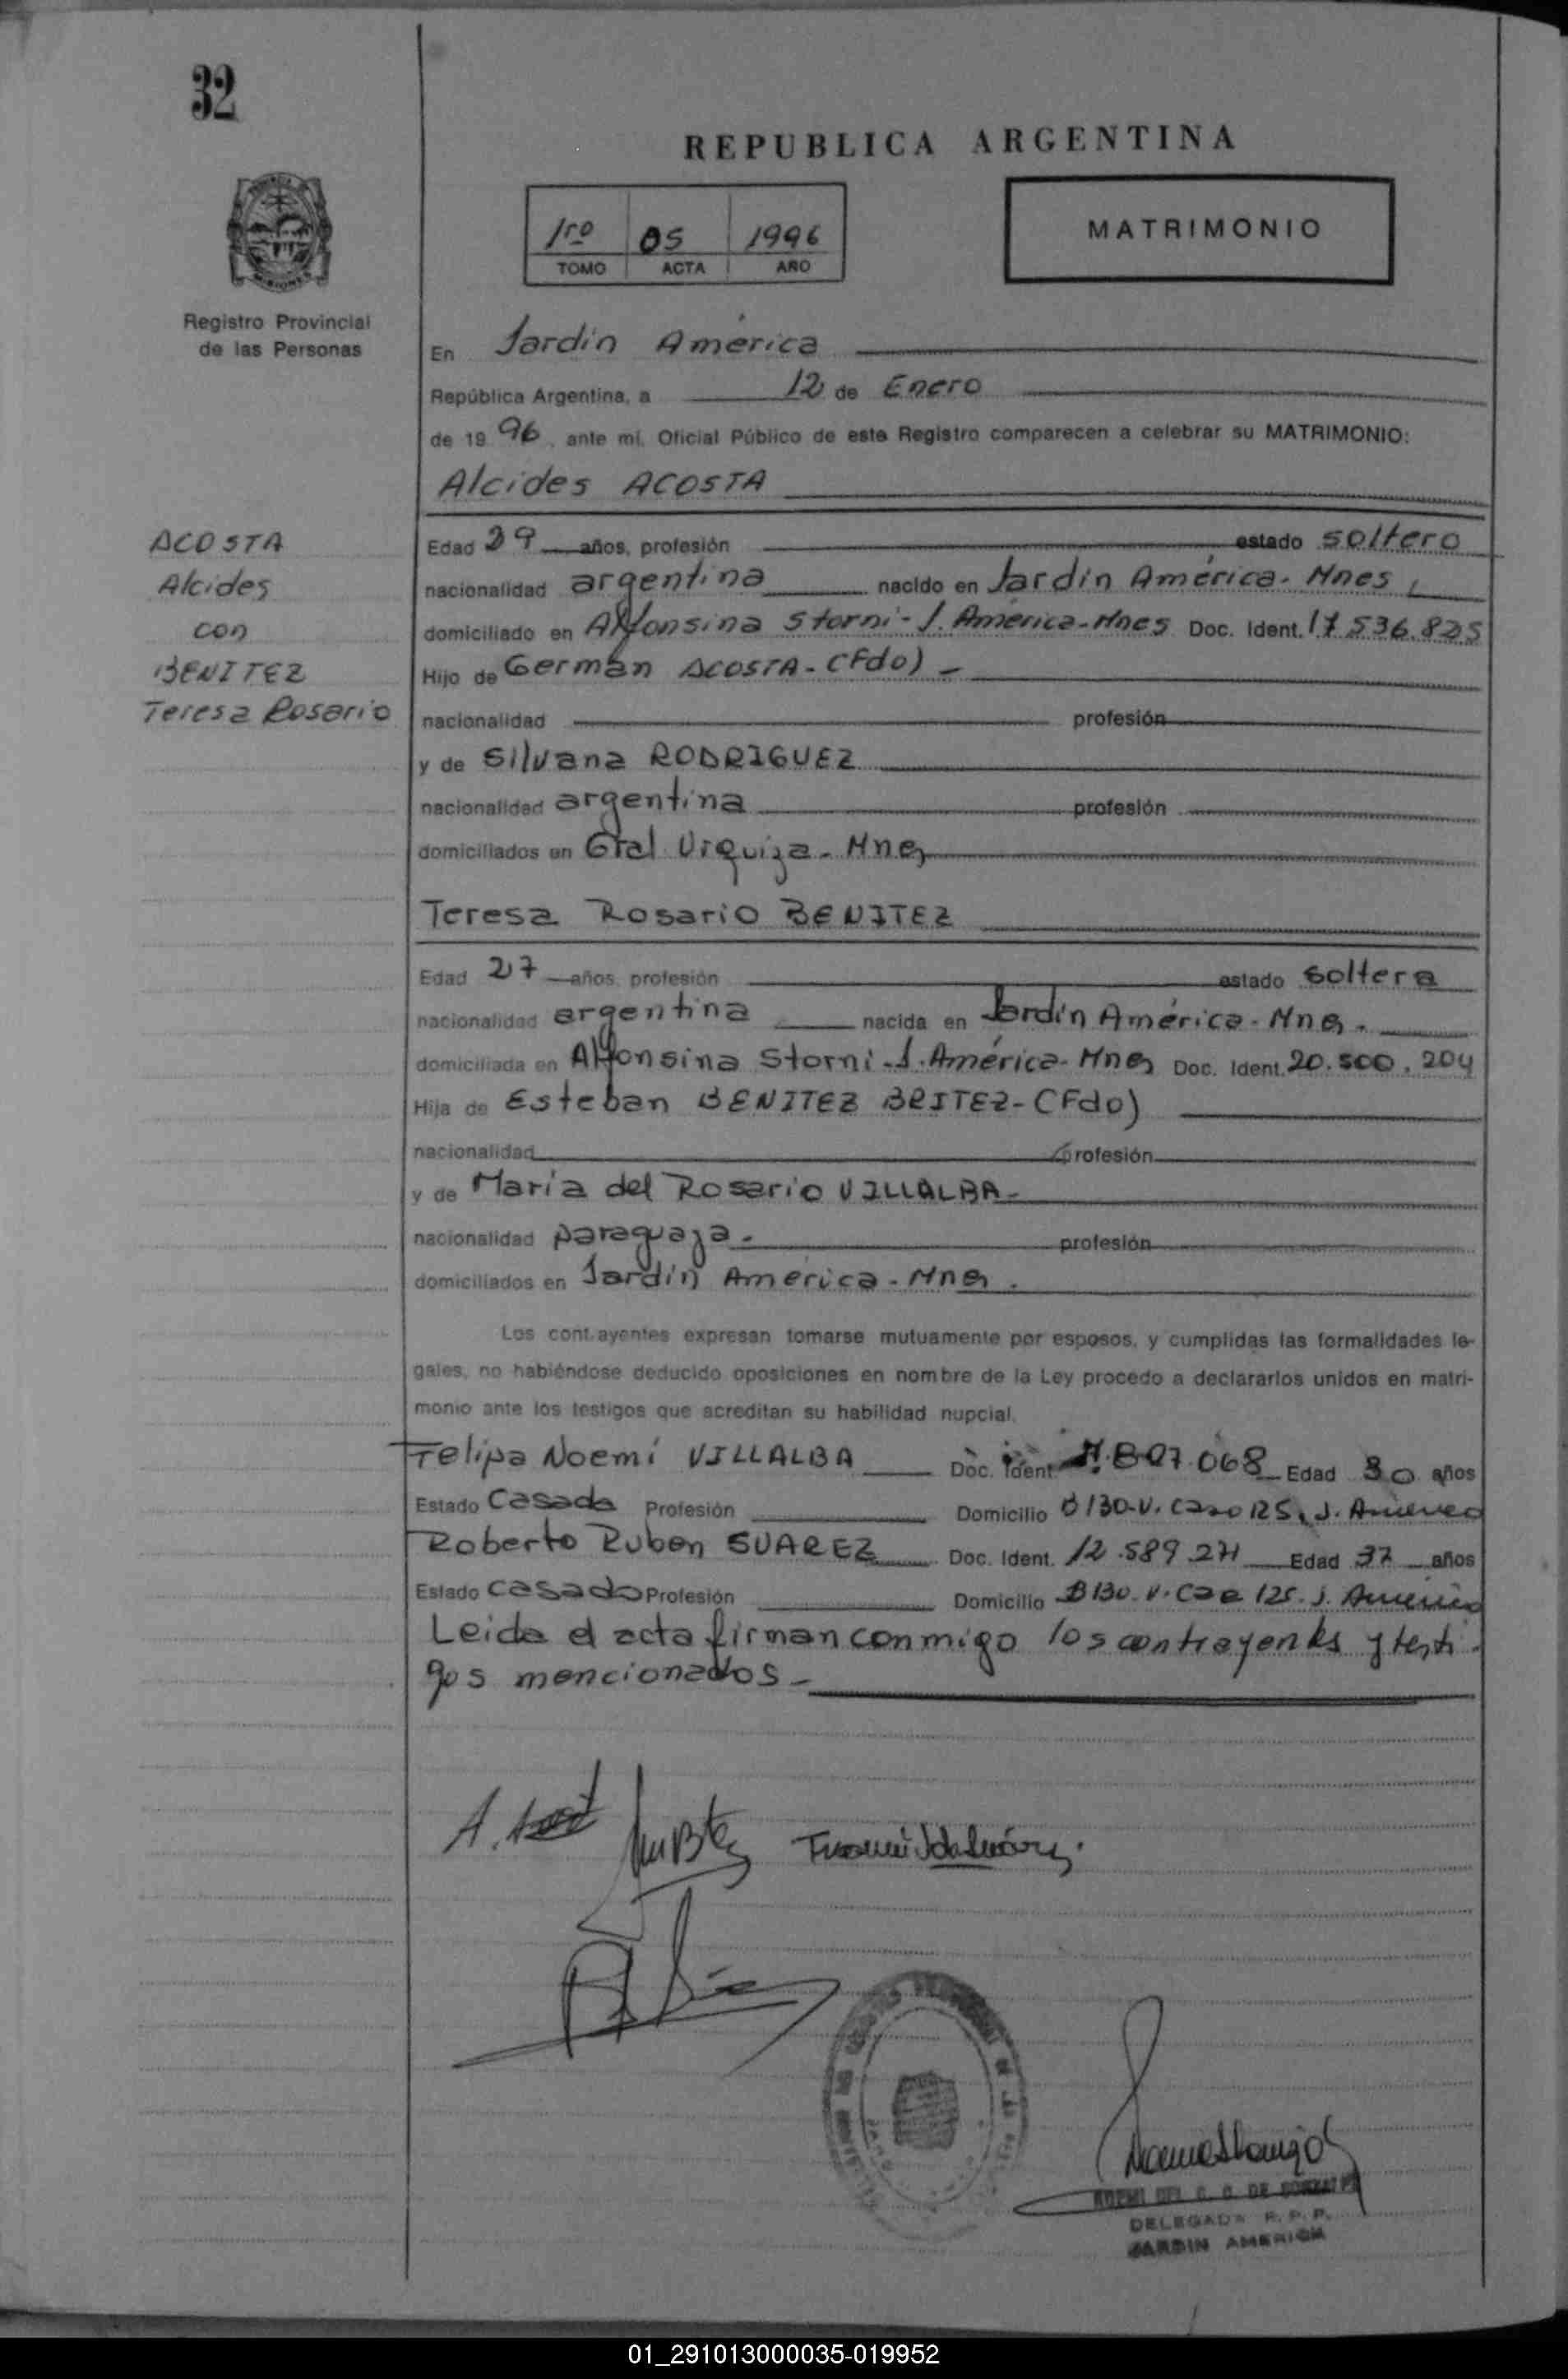 32
REPUBLICA ARGENTINA
1ro 05 1996
TOMO ACTA AÑO
MATRIMONIO
Registro Provincial
de las Personas
En Jardín América
República Argentina, a 12 de Enero
de 19 96, ante mí, Oficial Público de este Registro comparecen a celebrar su MATRIMONIO:
Alcides ACOSTA
ACOSTA
Alcides
con
BENITEZ
Teresa Rosario
Edad 29 años, profesión estado soltero
nacionalidad argentina nacido en Jardín América - Mnes
domiciliado en Alfonsina Storni - J. América - Mnes Doc. Ident. 17.536.825
Hijo de Germán ACOSTA - (Fdo) -
nacionalidad profesión
y de Silvana RODRIGUEZ
nacionalidad argentina profesión
domiciliados en Gral Urquiza - Mnes
Teresa Rosario BENITEZ
Edad 27 años, profesión estado soltera
nacionalidad argentina nacida en Jardín América - Mnes.
domiciliada en Alfonsina Storni - J. América - Mnes Doc. Ident. 20.500.204
Hija de Esteban BENITEZ BRITEZ - (Fdo)
nacionalidad profesión
y de María del Rosario VILLALBA -
nacionalidad paraguaya - profesión
domiciliados en Jardín América - Mnes.
Los contrayentes expresan tomarse mutuamente por esposos, y cumplidas las formalidades le-
gales, no habiéndose deducido oposiciones en nombre de la Ley procedo a declararlos unidos en matri-
monio ante los testigos que acreditan su habilidad nupcial.
Felipa Noemí VILLALBA Doc. Ident. Edad 30 años
Estado Casada Profesión Domicilio B 130-V. Casa 125, J. América
Roberto Ruben SUAREZ Doc. Ident. 12.589.271 Edad 37 años
Estado casado Profesión Domicilio B 130-V. Casa 125. J. América
Leida el acta firman conmigo los contrayentes y testi-
gos mencionados -
NOEMI DEL C. G. DE GONZALEZ
DELEGADA R. P. P.
JARDIN AMERICA
01_291013000035-019952